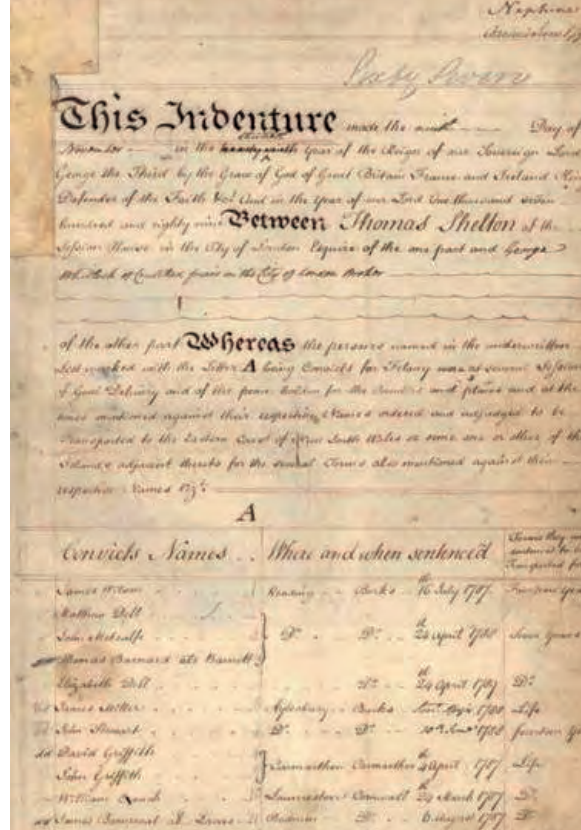 Neptune
Sixty Seven
This Indenture made the ninth Day of
thirtieth
November in the twenty ninth Year of the Reign of our Sovereign Lord
George the Third by the Grace of God of Great Britain France and Ireland King
Defender of the Faith &c And in the Year of our Lord One thousand seven
hundred and eighty nine Between Thomas Shelton of the
Session House in the City of London Esquire of the one part and George
Whitlock of Crutched friars in the City of London Broker
of the other part Whereas the persons named in the underwritten
List marked with the Letter A being Convicts for Felony were at several Sessions
of Gaol Delivery and of the peace holden for the Counties and places and at the
times mentioned against their respective Names ordered and adjudged to be
Transported to the Eastern Coast of New South Wales or some one or other of the
Islands adjacent thereto for the several Terms also mentioned against their
respective Names Viz.t
A
Convicts Names Where and when sentenced Terms they
Transported for
James Wilson Reading Berks 16th July 1787
Matthew Dell
John Metcalfe Do. Do. 24 April 1788 Seven Years
Thomas Barnard als Barnett
Elizabeth Dell Do. 24th April 1787 Do.
James Miller Aylesbury Bucks 1788 Life
John Stewart Do. Do. 1788 fourteen
David Griffith
John Griffith Carmarthen Carmarthen 4th April 1787 Life
William Launceston Cornwall 24th March 1787 Do.
James als Bodmin Do. 6 August 1787 Do.